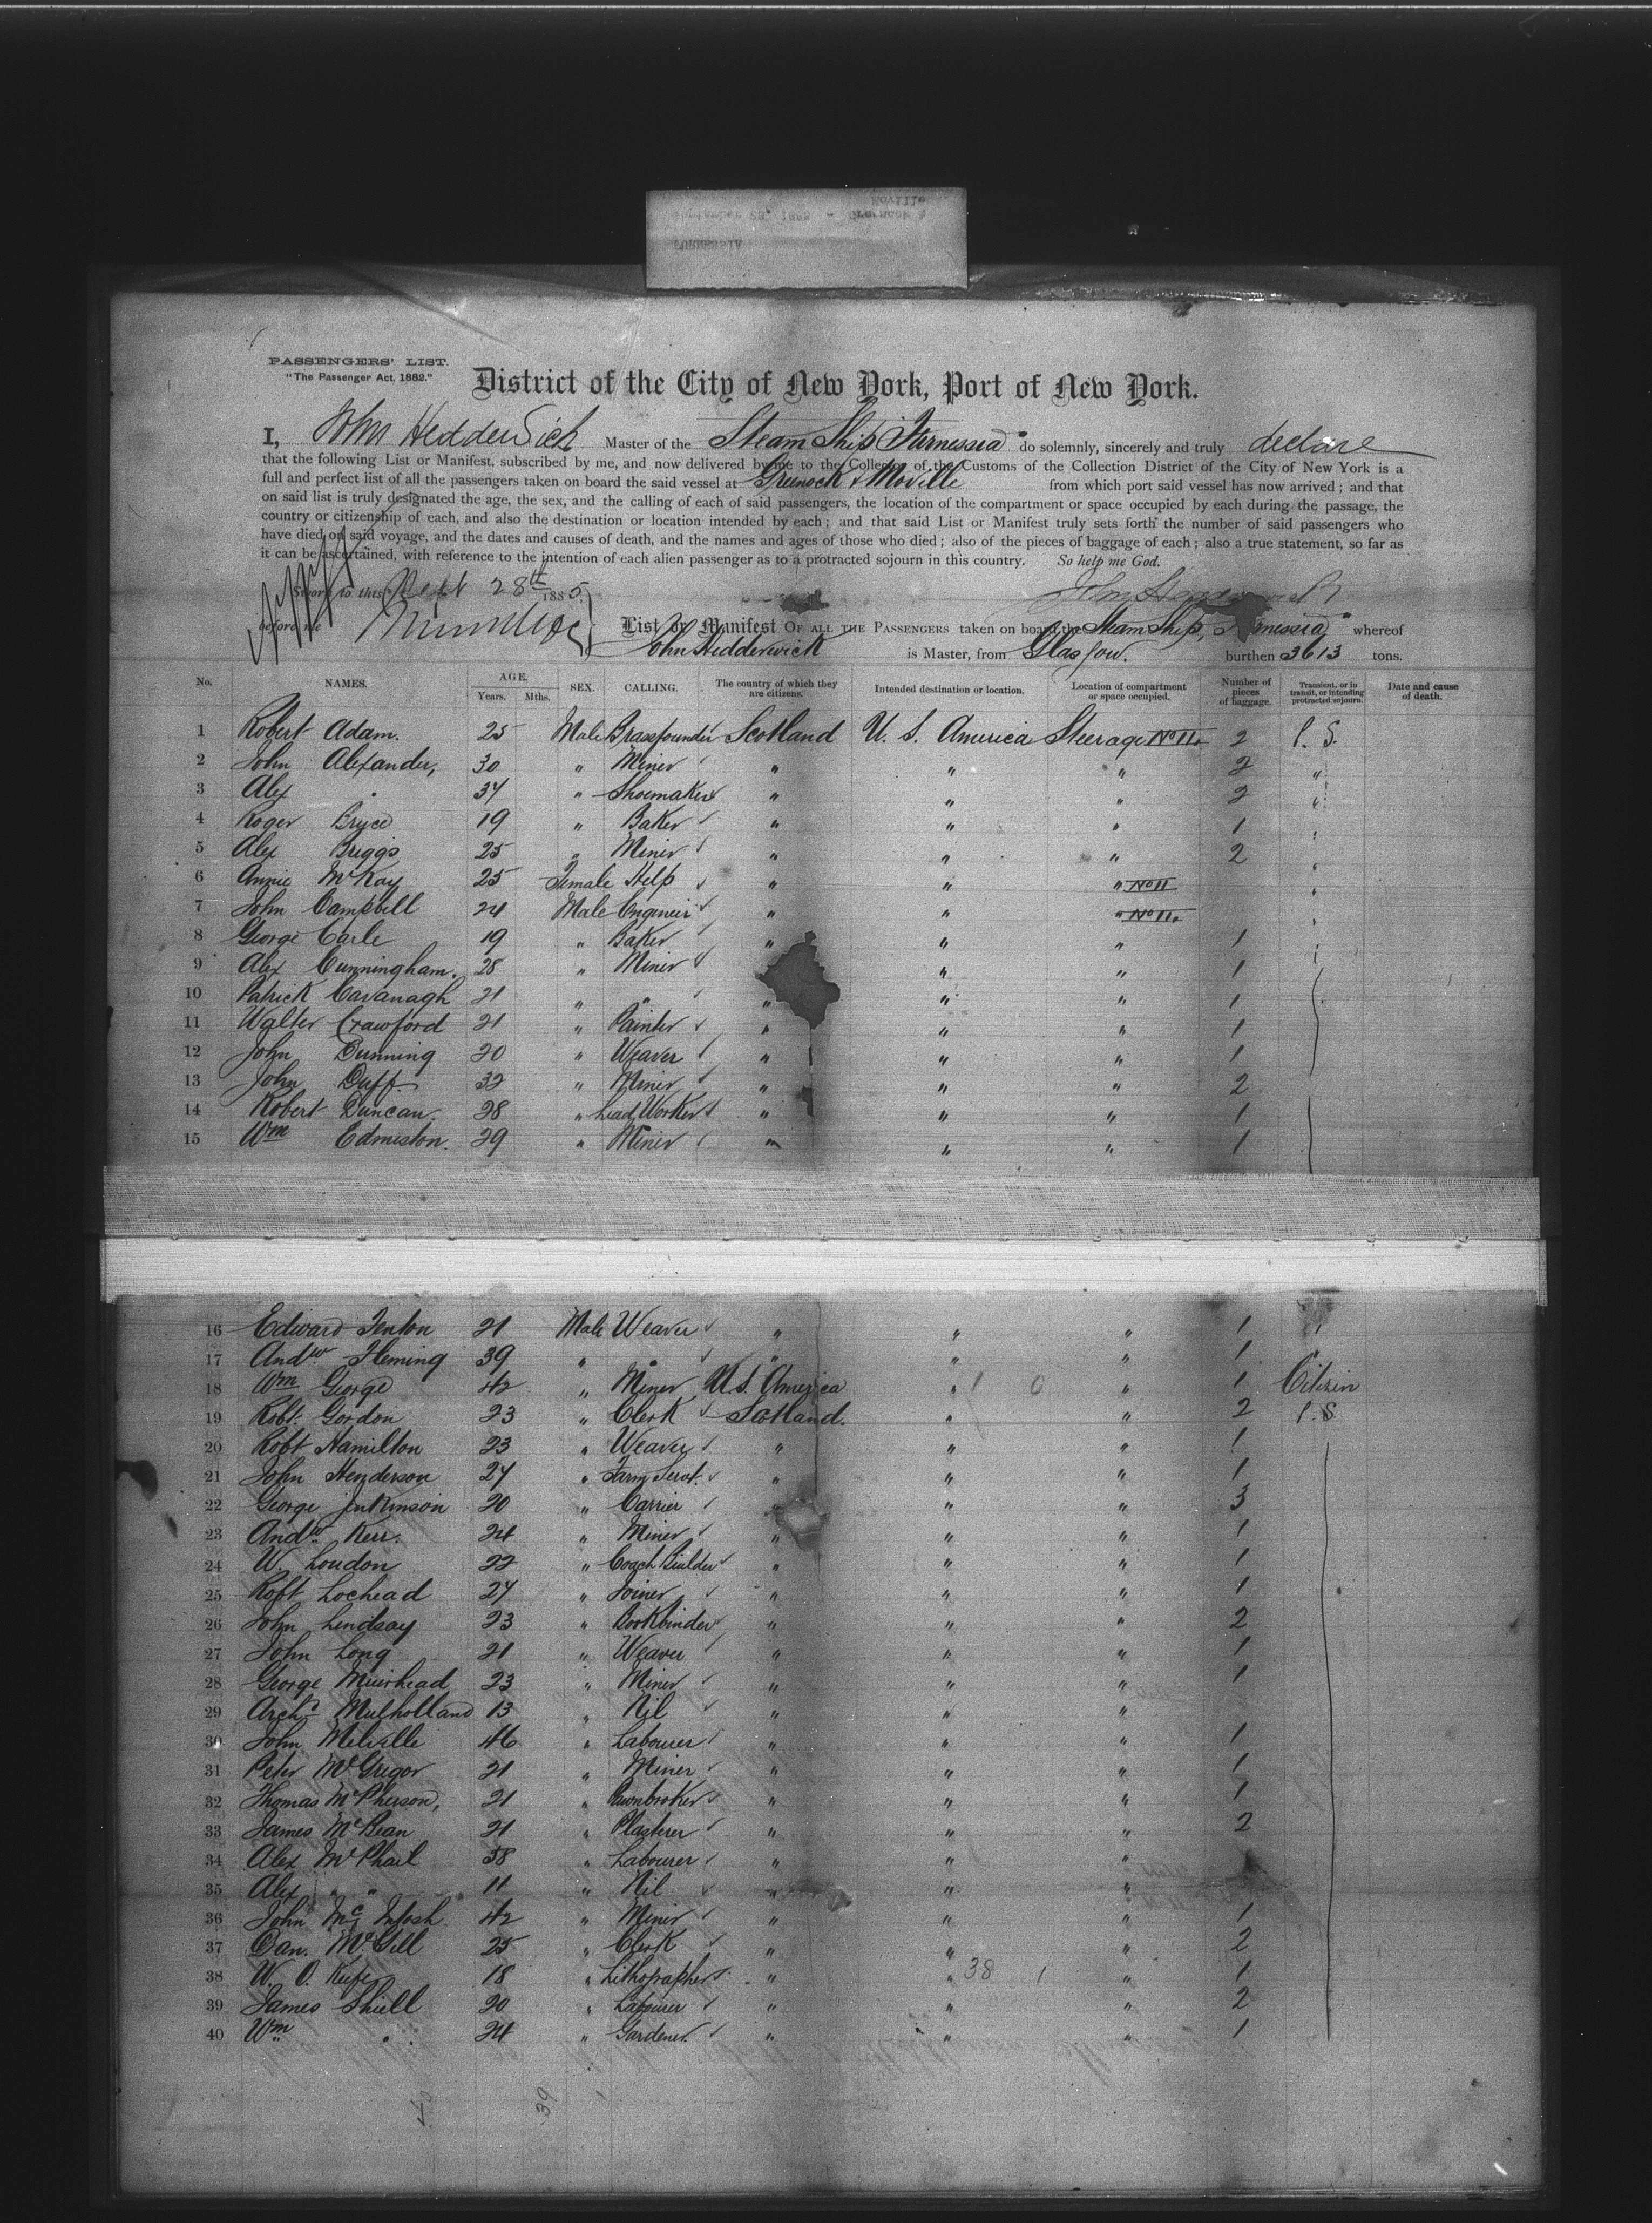 FURNESSIA
September 28, 1885 - Greenock & Moville
PASSENGERS' LIST.
"The Passenger Act, 1882."
District of the City of New York, Port of New York.
I, John Hedderwich Master of the Steam Ship "Furnessia" do solemnly, sincerely and truly declare
that the following List or Manifest, subscribed by me, and now delivered by me to the Collector of the Customs of the Collection District of the City of New York is a
full and perfect list of all the passengers taken on board the said vessel at Greenock & Moville from which port said vessel has now arrived; and that
on said list is truly designated the age, the sex, and the calling of each of said passengers, the location of the compartment or space occupied by each during the passage, the
country or citizenship of each, and also the destination or location intended by each; and that said List or Manifest truly sets forth the number of said passengers who
have died on said voyage, and the dates and causes of death, and the names and ages of those who died; also of the pieces of baggage of each; also a true statement, so far as
it can be ascertained, with reference to the intention of each alien passenger as to a protracted sojourn in this country. So help me God.
Sworn to this Sept 28th 1885.
before me
List or Manifest OF ALL THE PASSENGERS taken on board the Steam Ship, "Furnessia" whereof
John Hedderwick is Master, from Glasgow. burthen 3613 tons.
No. NAMES. AGE. Years. Mths. SEX. CALLING. The country of which they are citizens. Intended destination or location. Location of compartment or space occupied. Number of pieces of baggage. Transient, or in transit, or intending protracted sojourn. Date and cause of death.
1 Robert Adam. 25 Male Brassfounder Scotland U. S. America Steerage No 11. 2 P. S.
2 John Alexander, 30 " Miner " " " 2 "
3 Alex " 34 " Shoemaker " " " 2 "
4 Roger Bryce 19 " Baker " " " 1 "
5 Alex Briggs 25 " Miner " " " 2 "
6 Annie McKay 25 Female Help " " " No 11 "
7 John Campbell 24 Male Engineer " " " No 11. "
8 George Carle 19 " Baker " " " 1 "
9 Alex Cunningham. 28 " Miner " " 1
10 Patrick Cavanagh 21 " " " " " 1
11 Walter Crawford 21 " Painter " " " 1
12 John Dunning 20 " Weaver " " " 1
13 John Duff 32 " Miner " " " 2
14 Robert Duncan. 28 " Lead Worker " " " 1
15 Wm Edmiston. 29 " Miner " " " 1
16 Edward Fenton 21 Male Weaver " " " 1 "
17 Andw. Fleming 39 " " " " " 1 "
18 Wm George 42 " Miner U.S. America " 1 0 " 1 Citizen
19 Robt. Gordon 23 " Clerk Scotland. " " 2 P.S.
20 Robt Hamilton 23 " Weaver " " " 1
21 John Henderson 24 " Farm Servt. " " " 1
22 George Jenkinson 20 " Carrier " " " 3
23 Andw. Kerr. 24 " Miner " " " 1
24 W. Loudon 22 " Coach Builder " " " 1
25 Robt Lochead 27 " Joiner " " " 1
26 John Lendsay 23 " Bookbinder " " " 2
27 John Long 21 " Weaver " " " 1
28 George Muirhead 23 " Miner " " " 1
29 Archd Mulholland 13 " Nil " " "
30 John Melville 46 " Labourer " " " 1
31 Peter McGregor 21 " Miner " " " 1
32 Thomas McPherson, 21 " Pawnbroker " " " 1
33 James McBean 21 " Plasterer " " " 2
34 Alex McPhail 38 " Labourer " " "
35 Alex " " 11 " Nil " " "
36 John McIntosh 42 " Miner " " " 1
37 Dan. McGill 25 " Clerk " " " 2
38 W. O. Keefe 18 " Lithographer " " 38 1 " 1
39 James Shiell 20 " Labourer " " " 2
40 Wm " 24 " Gardener. " " " 1
39